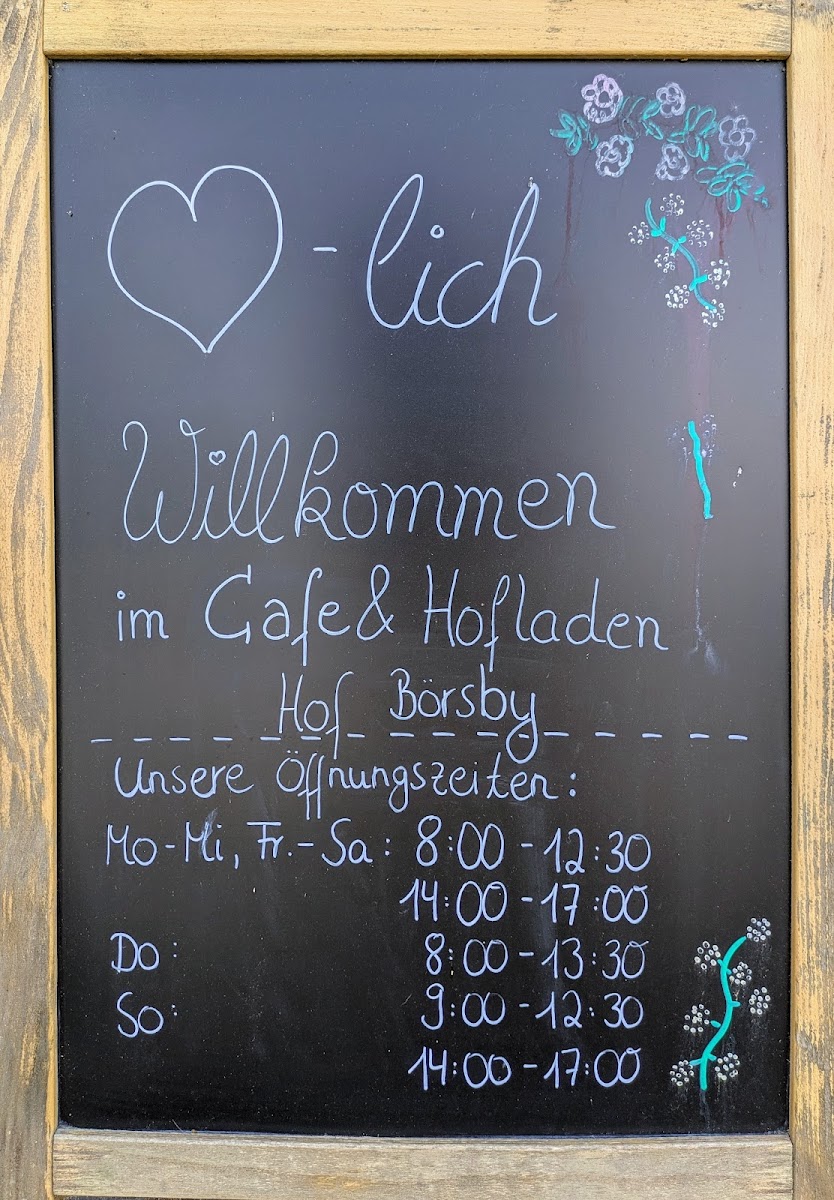 ♡-lich
Willkommen
im Cafe & Hofladen
Hof Börsby
Unsere Öffnungszeiten:
Mo-Mi, Fr.-Sa: 8:00-12:30
14:00-17:00
Do: 8:00-13:30
So: 9:00-12:30
14:00-17:00